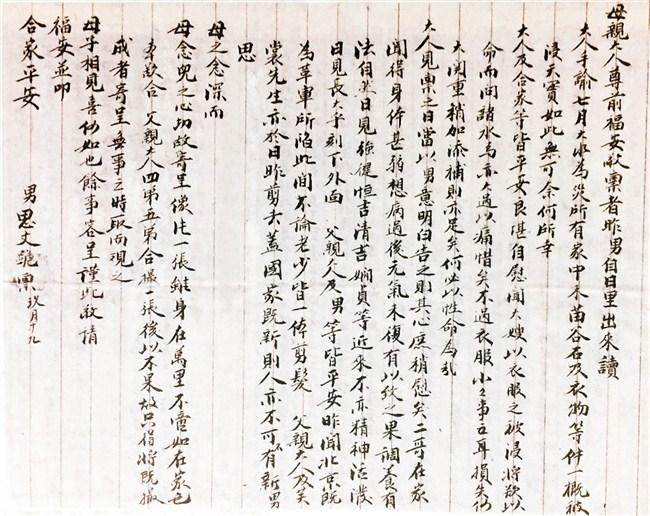 母親大人尊前福安敬禀者昨男自日里出來讀
大人手諭七月大水為災所有家中禾苗谷石及衣物等件一概被
浸天實如此無可奈何所幸
大人及合家等皆平安良堪自慰聞大嫂以衣服之被浸將欲以
命而問諸水焉亦太過以痛惜矣不過衣服小之事五耳損失何
大関重稍加添補則亦足矣何必以性命為乱
大人見禀之日當以男意明白告之則其心庶稍慰矣二哥在家
聞得身体甚弱想病過後元氣未復有以致之果調養有
法自然日見強健恒吉清吉嫻貞等近來不亦精神活潑
日見長大乎刻下外面 父親大人及男等皆平安昨聞北京既
為革軍所陷此間不論老少皆一倂剪髮 父親大人及笑
裳先生亦於日昨剪去蓋國家既新則人亦不可不有新男
思
母之念深而
母念兒之心切故寄里像片一張雖身在萬里不啻如在家也
本欲合 父親大人四弟五弟合撮一張後以不果故只得將既撮
成者寄呈無事之時取而視之
母子相見喜何如也餘事容呈謹此敬請
福安並叩
合家平安
男思文 禀 玖月十九